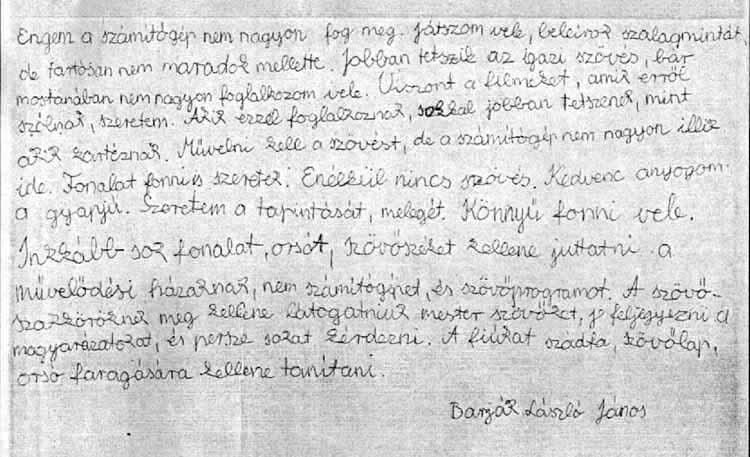 Engem a számitógép nem nagyon fog meg. Játszom vele, beleirok szalagmintát,
de tartósan nem maradok mellette. Jobban tetszik az igazi szövés, bár
mostanában nem nagyon foglalkozom vele. Viszont a filmeket, amik erről
szólnak, szeretem. Akik ezzel foglalkoznak, sokkal jobban tetszenek, mint
akik kártéznak. Művelni kell a szövést, de a számitógép nem nagyon illik
ide. Fonalat fonni is szeretek. Enélkül nincs szövés. Kedvenc anyagom
a gyapjú. Szeretem a tapintását, melegét. Könnyű fonni vele.
Inkább sok fonalat, orsót, szövőszéket kellene juttatni a
művelődési házaknak, nem számitógépet, és szövőprogramot. A szövő-
szakköröknek meg kellene látogatniuk mester szövőket, jó feljegyezni a
magyarázatokat, és persze sokat kérdezni. A fiúkat szádfa, szövőlap,
orsó faragására kellene tanitani.
Barják László János